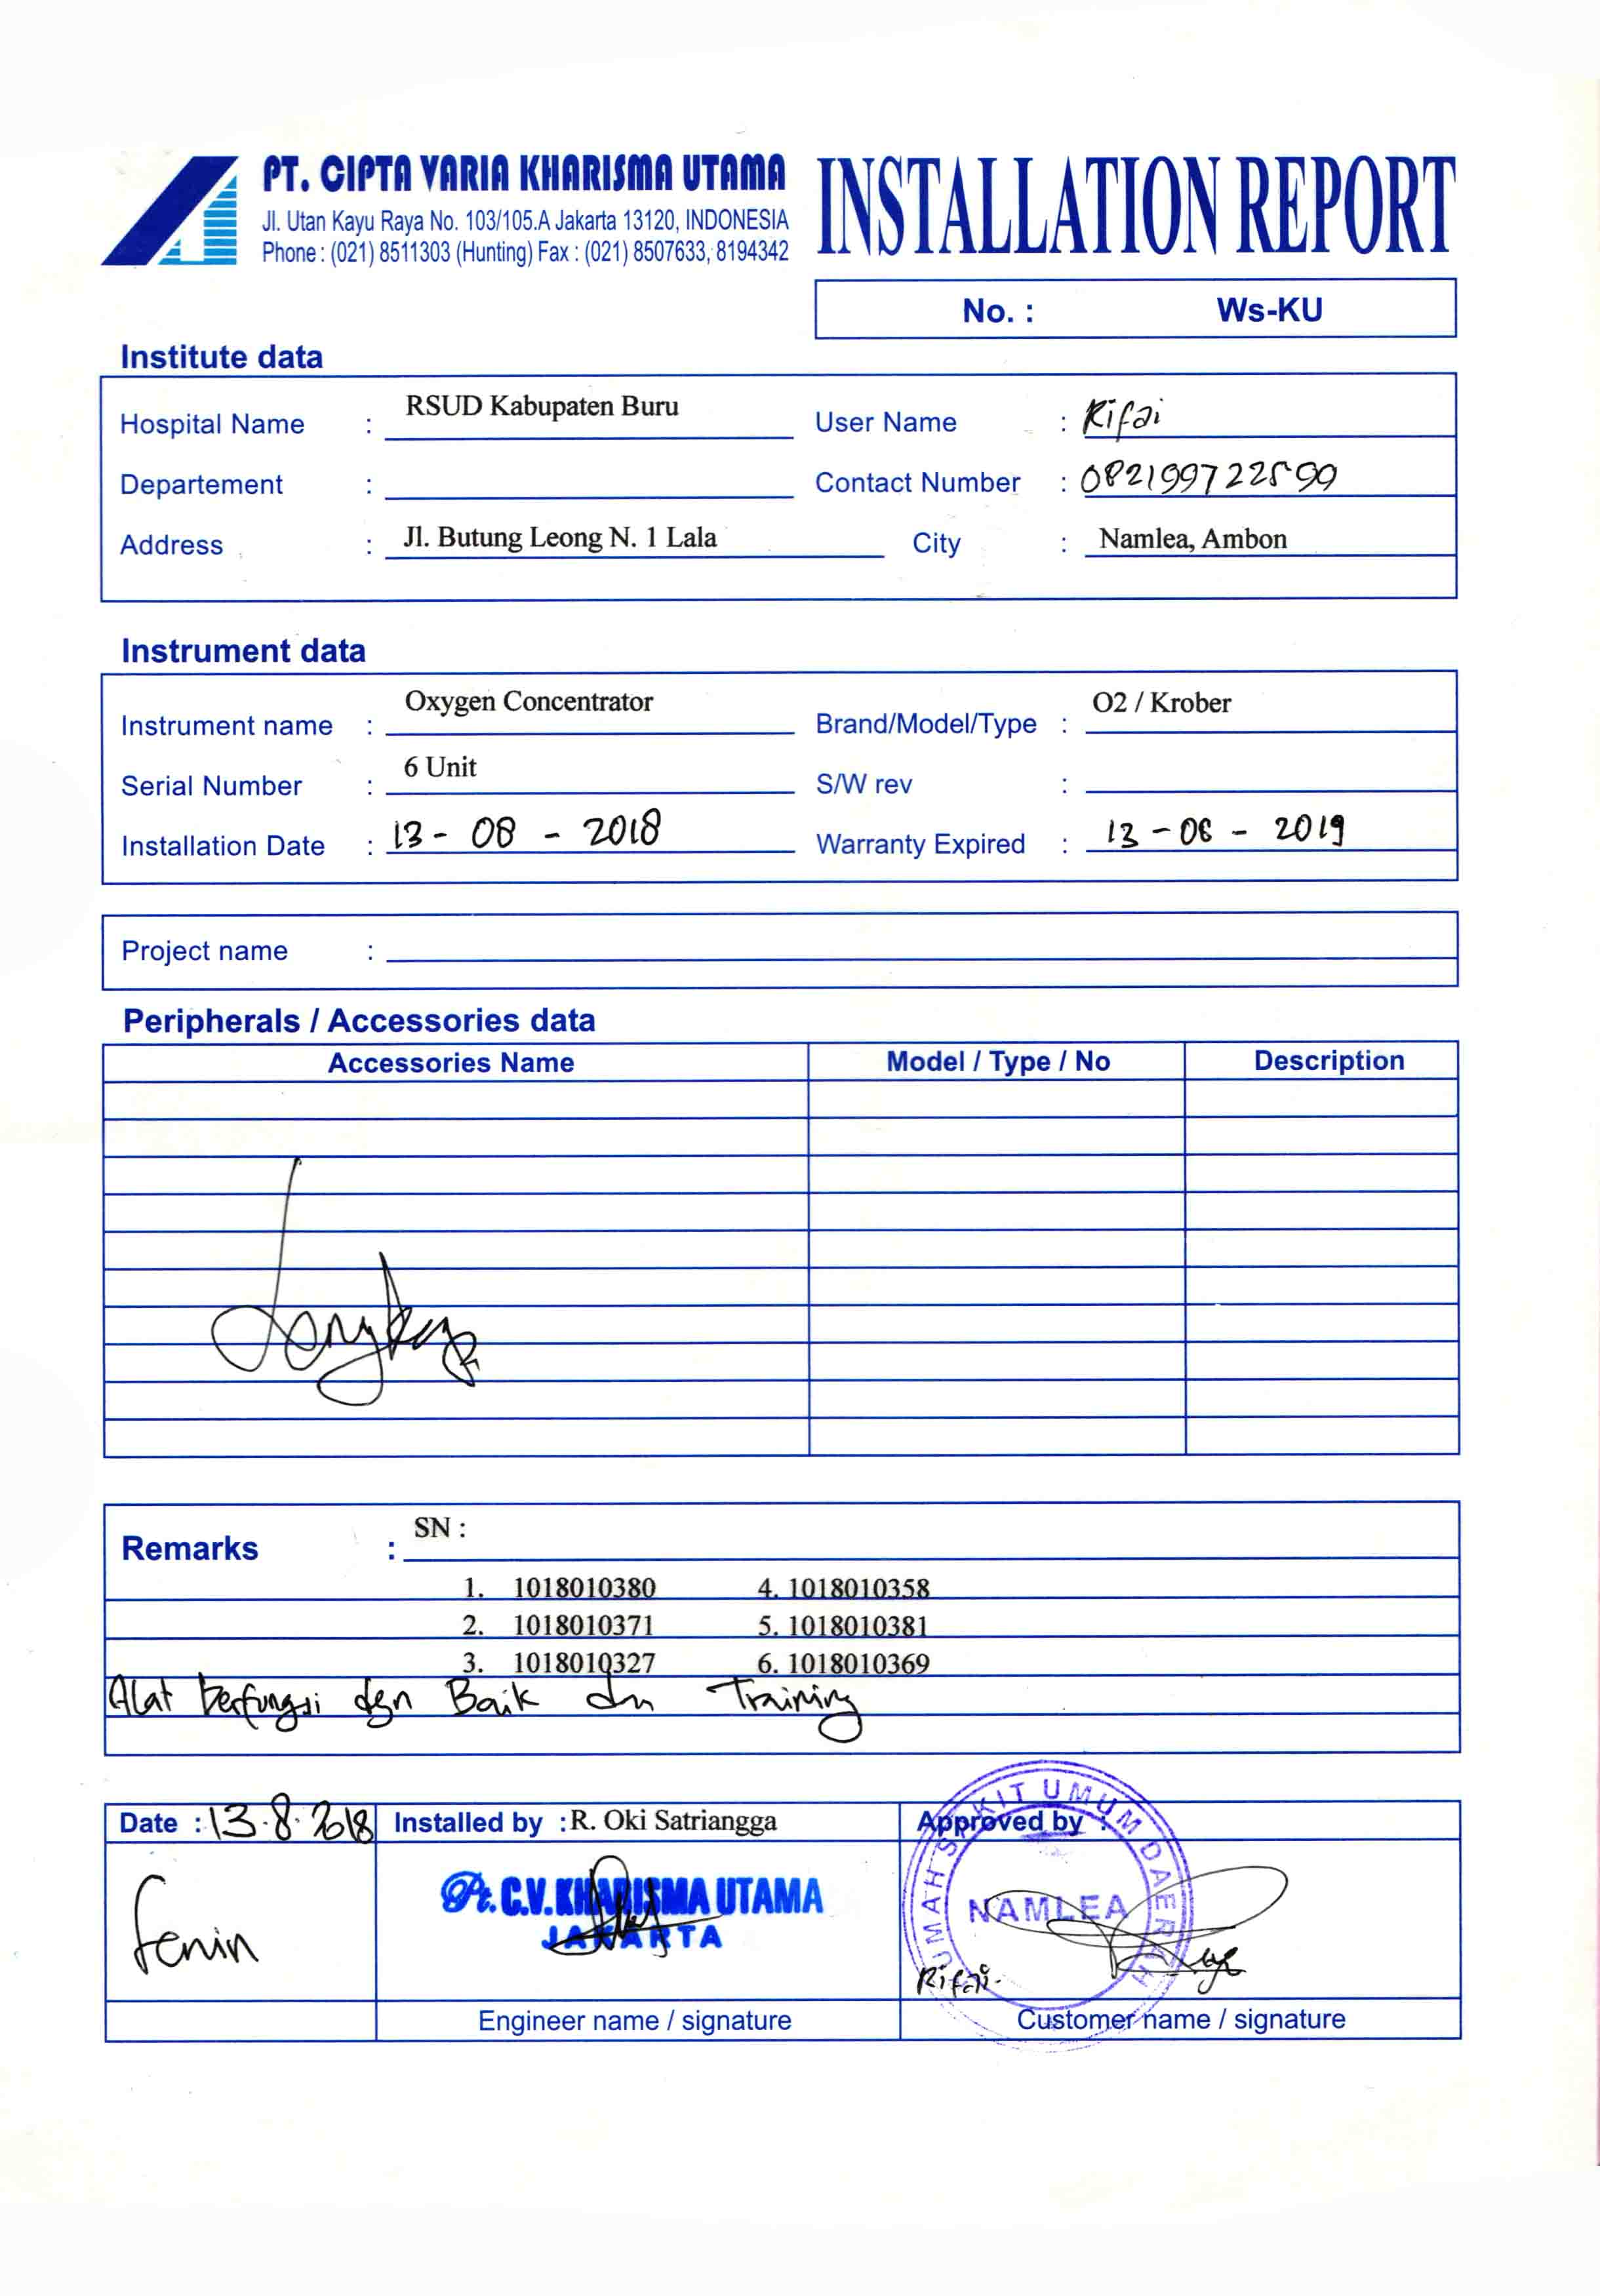 PT. CIPTA VARIA KHARISMA UTAMA
Jl. Utan Kayu Raya No. 103/105.A Jakarta 13120, INDONESIA
Phone : (021) 8511303 (Hunting) Fax : (021) 8507633, 8194342
INSTALLATION REPORT
No. : Ws-KU
Institute data
Hospital Name : RSUD Kabupaten Buru User Name : Rifai
Departement : Contact Number : 082199722599
Address : Jl. Butung Leong N. 1 Lala City : Namlea, Ambon
Instrument data
Instrument name : Oxygen Concentrator Brand/Model/Type : O2 / Krober
Serial Number : 6 Unit S/W rev :
Installation Date : 13 - 08 - 2018 Warranty Expired : 13 - 08 - 2019
Project name :
Peripherals / Accessories data
Accessories Name Model / Type / No Description
Lengkap
Remarks : SN :
1. 1018010380 4. 1018010358
2. 1018010371 5. 1018010381
3. 1018010327 6. 1018010369
Alat berfungsi dgn Baik dn Training
Date : 13.8.2018 Installed by : R. Oki Satriangga Approved by :
Senin
Pt. C.V. KHARISMA UTAMA
JAKARTA
RUMAH SAKIT UMUM DAERAH
NAMLEA
Rifai.
Engineer name / signature Customer name / signature